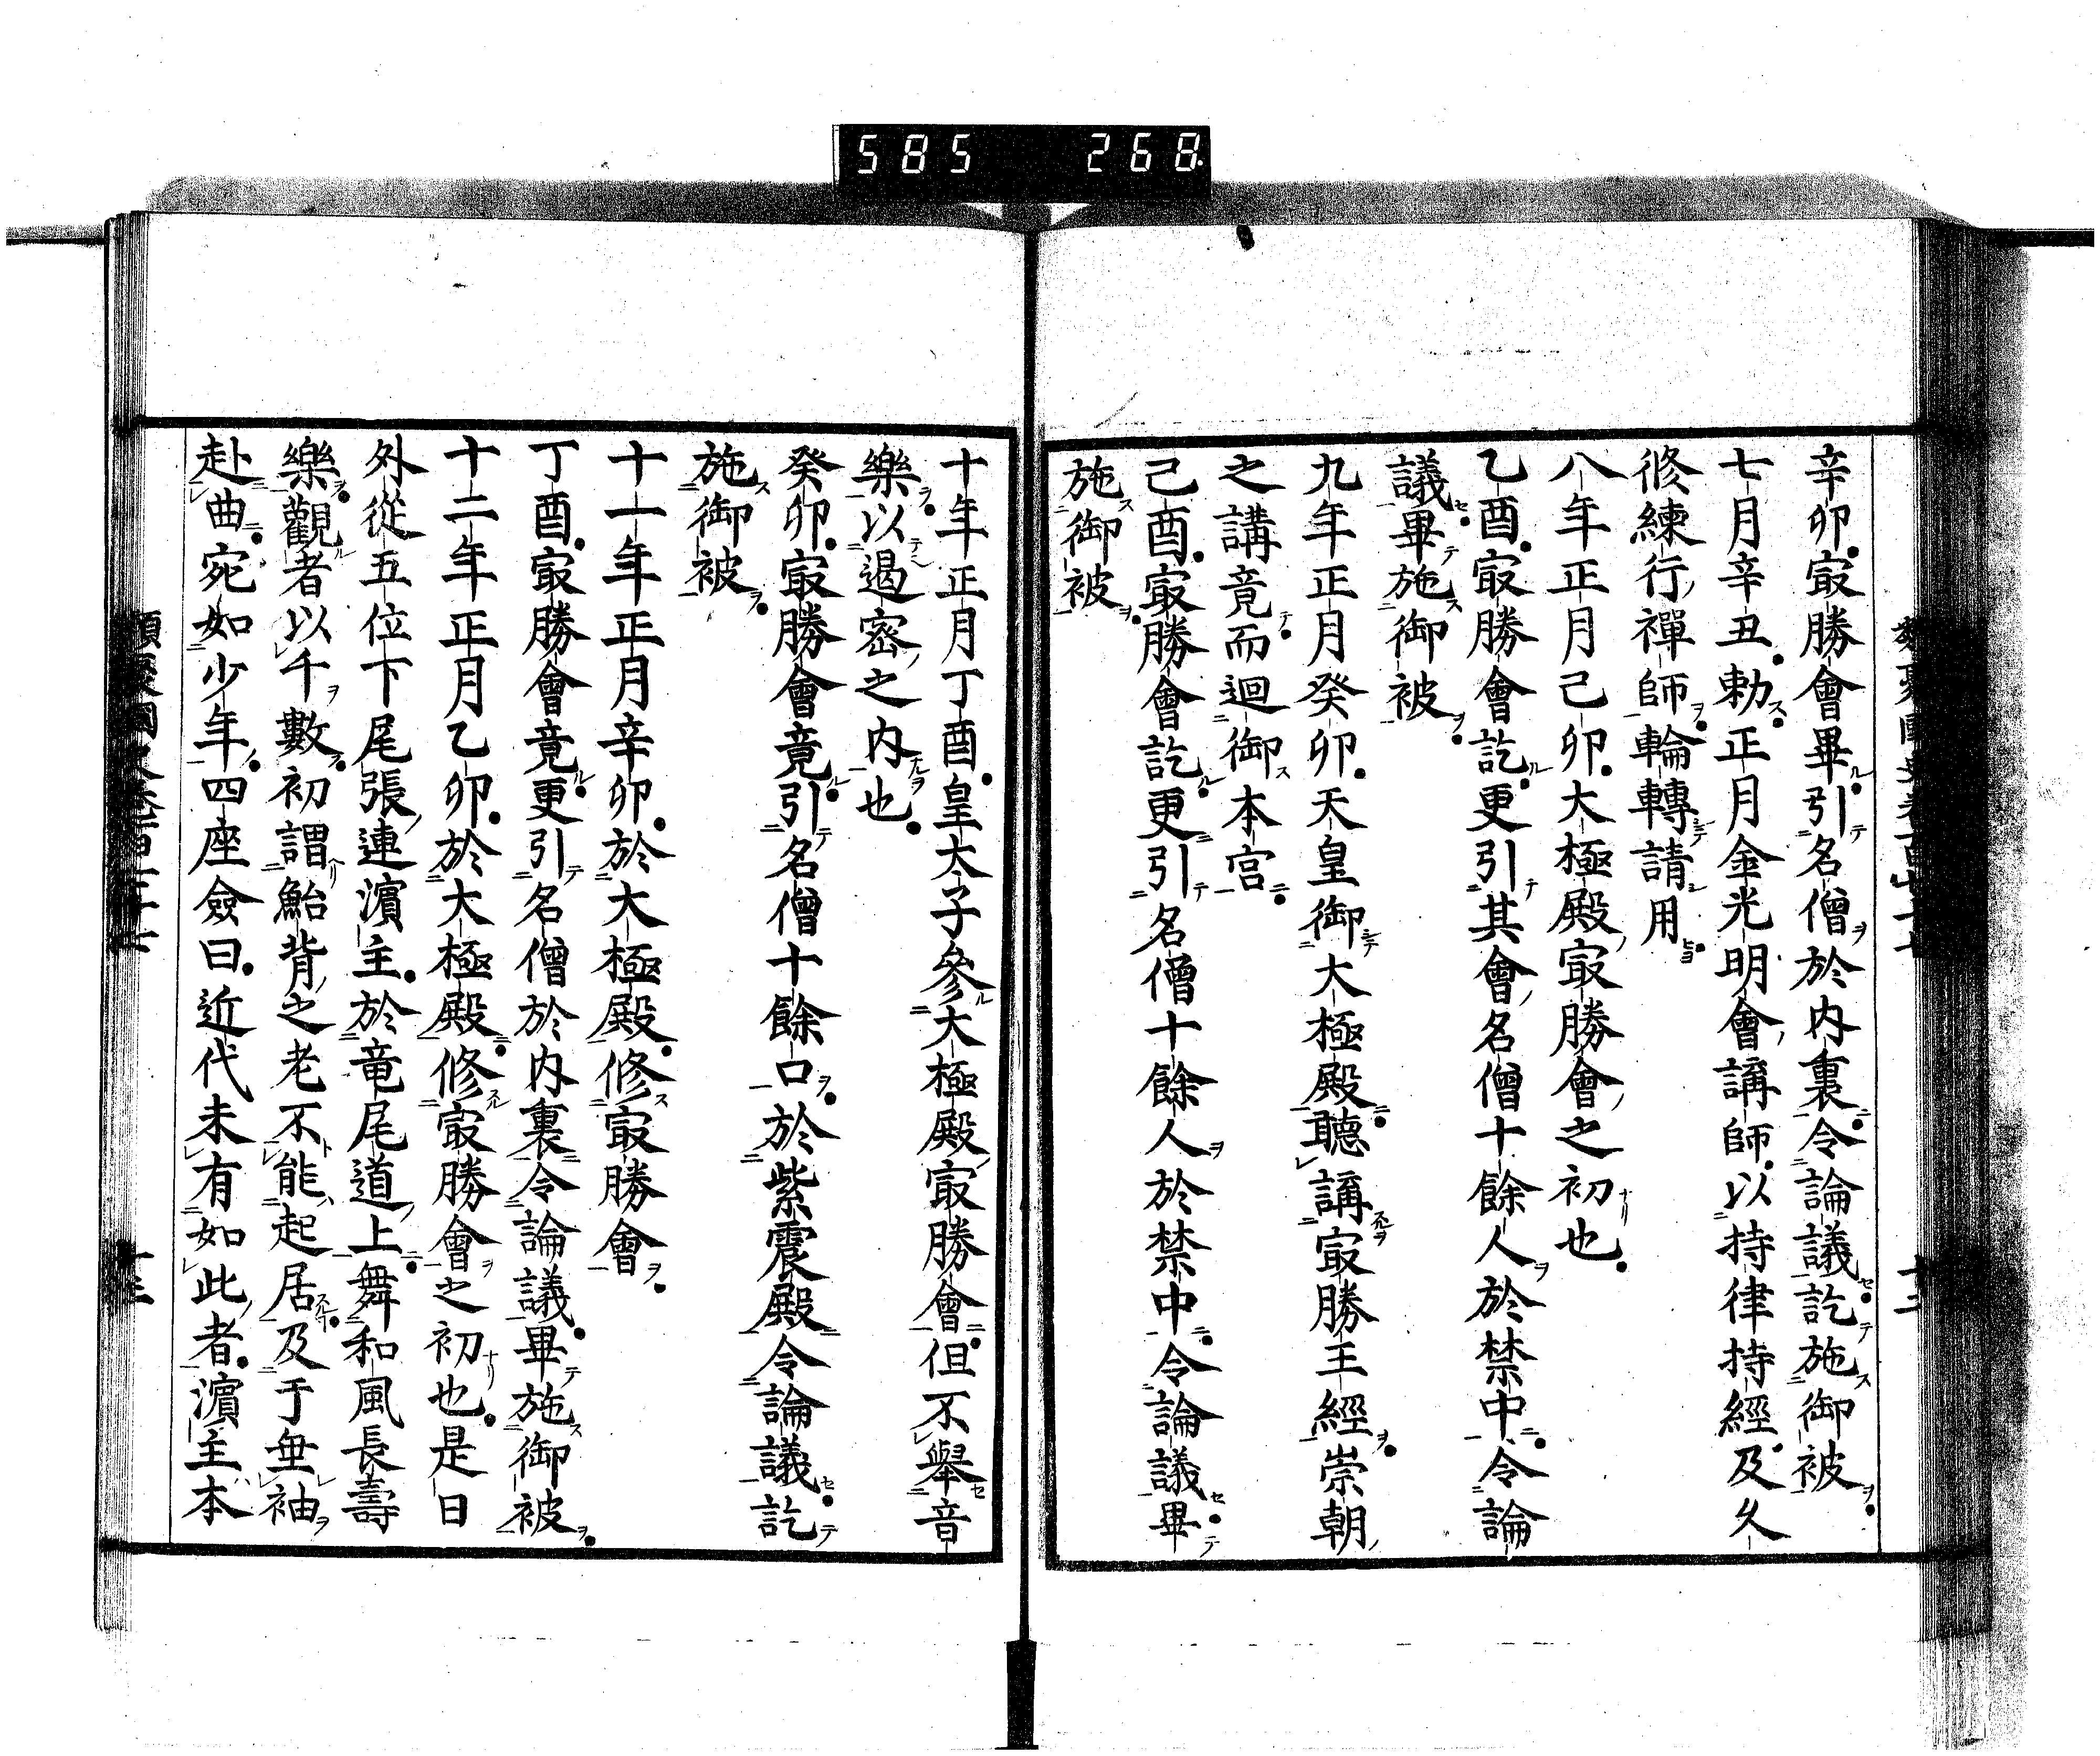 585 268
辛卯。㝡勝會畢。引名僧於内裏。令論議。訖施御被。
七月辛丑。勅。正月金光明會講師。以持律持經。及久
修練行禪師。輪轉請用。
八年正月己卯。大極殿㝡勝會之初也。
乙酉。㝡勝會訖。更引其會名僧十餘人於禁中。令論
議。畢施御被。
九年正月癸卯。天皇御大極殿。聴講㝡勝王經。崇朝
之講竟。而迴御本宮。
己酉。㝡勝會訖。更引名僧十餘人於禁中。令論議。畢
施御被。
十年正月丁酉。皇太子參大極殿㝡勝會。但不舉音
樂。以遏密之内也。
癸卯。㝡勝會竟。引名僧十餘口。於紫震殿令論議。訖
施御被。
十一年正月辛卯。於大極殿。修㝡勝會。
丁酉。㝡勝會竟。更引名僧於内裏令論議。畢施御被。
十二年正月乙卯。於大極殿。修㝡勝會之初也。是日
外從五位下尾張連濵主。於竜尾道上。舞和風長壽
樂。觀者以千數。初謂鮐背之老不能起居。及于垂袖
赴曲。宛如少年。四座僉曰。近代未有如此者。濵主本
類聚國史卷百七十七 十三